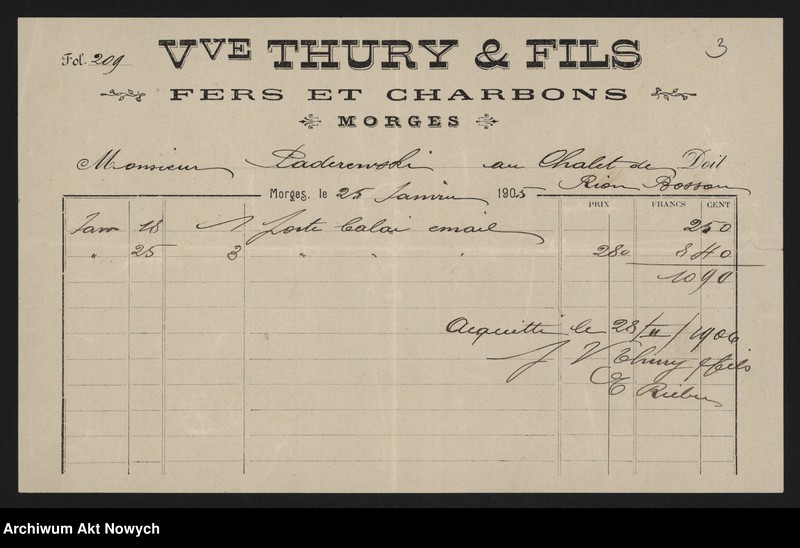 Fol. 209
3
VVE THURY & FILS
FERS ET CHARBONS
MORGES
Monsieur Paderewski au Chalet de Doit
Rion Bosson
Morges, le 25 Janvier 1905
PRIX FRANCS CENT
Janv 18 1 porte balai email 2 50
" 25 3 " " " 2 80 8 40
10 90
Acquitté le 28/II/1906
p Vve Thury & fils
E
Archiwum Akt Nowych